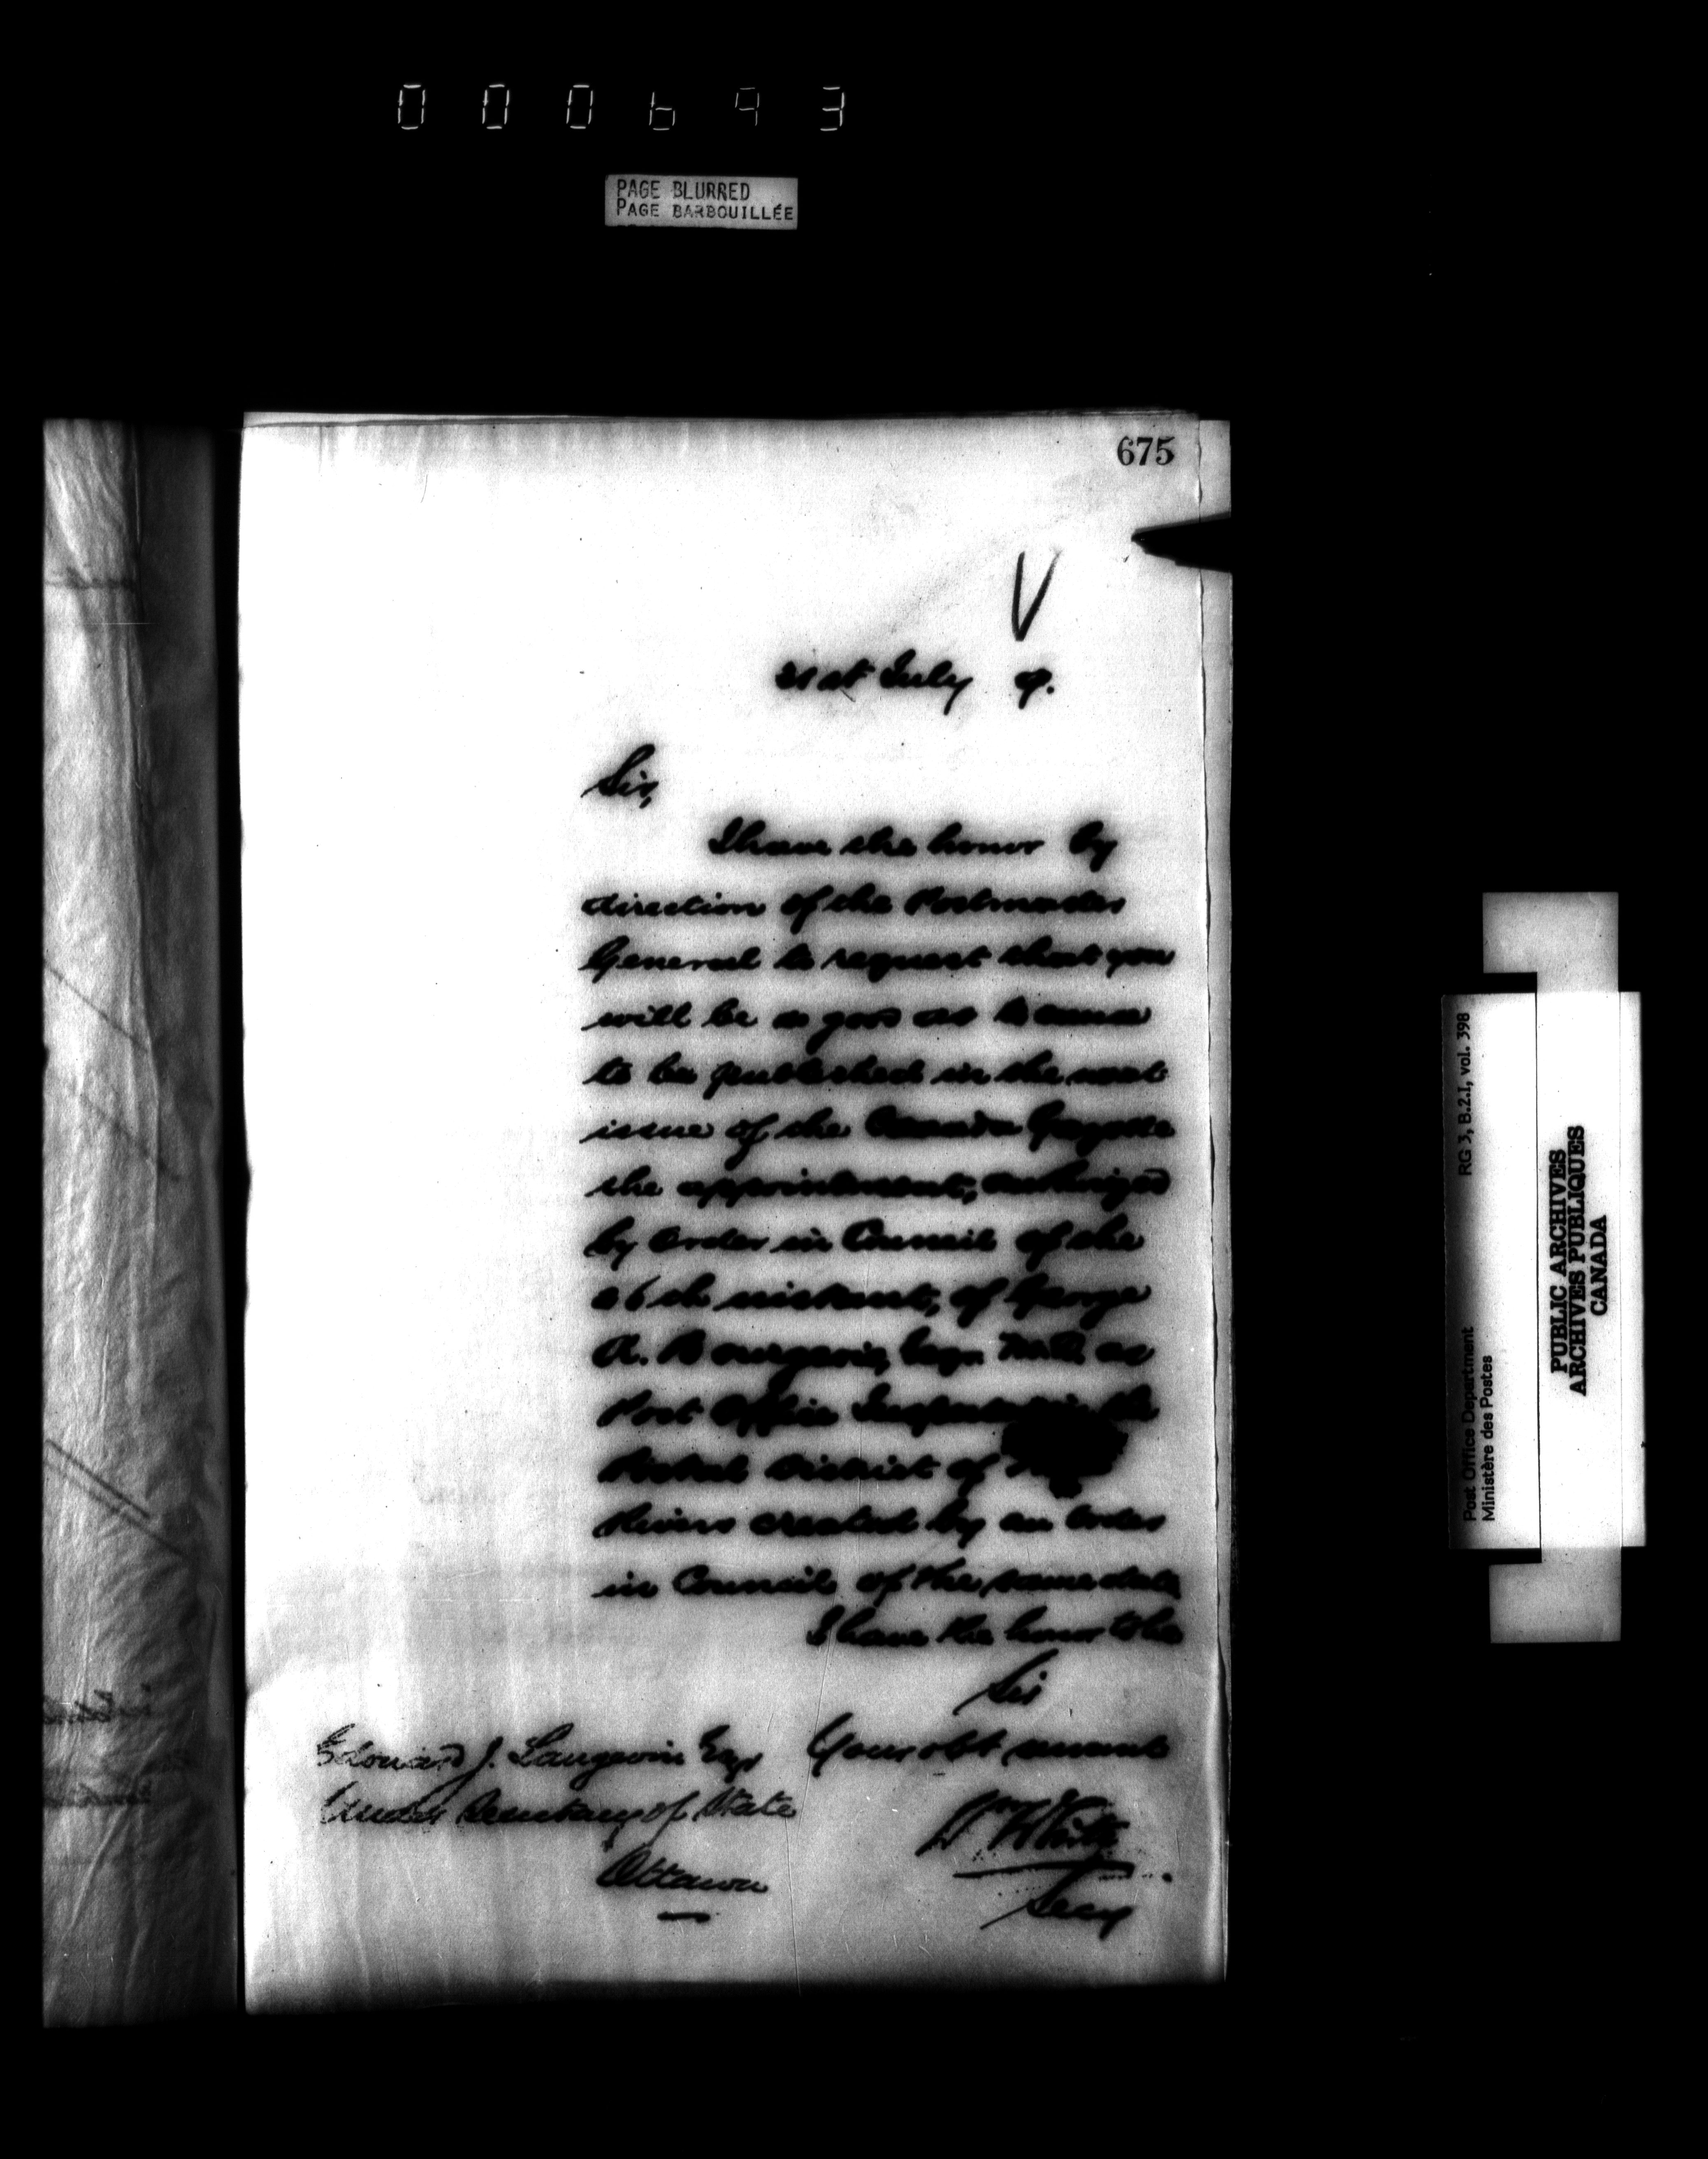 000693
PAGE BLURRED
PAGE BARBOUILLÉE
675
V
31st July 9.
Sir,
I have the honor by
direction of the Postmaster
General to request that you
will be so good as to cause
to be published in the next
issue of the Canada Gazette
the appointment, authorized
by Order in Council of the
26th instant, of George
A. Bourgeois, Esqr. M.D. as
Post Office Inspector in the
Postal District of
Rivers created by an Order
in Council of the same date
I have the honor to be
Sir
Your obt servant
Edouard J. Langevin Esqr
Under Secretary of State
Ottawa
Wm White
Secy
RG 3, B.2.1, vol. 398
Post Office Department
Ministère des Postes
PUBLIC ARCHIVES
ARCHIVES PUBLIQUES
CANADA